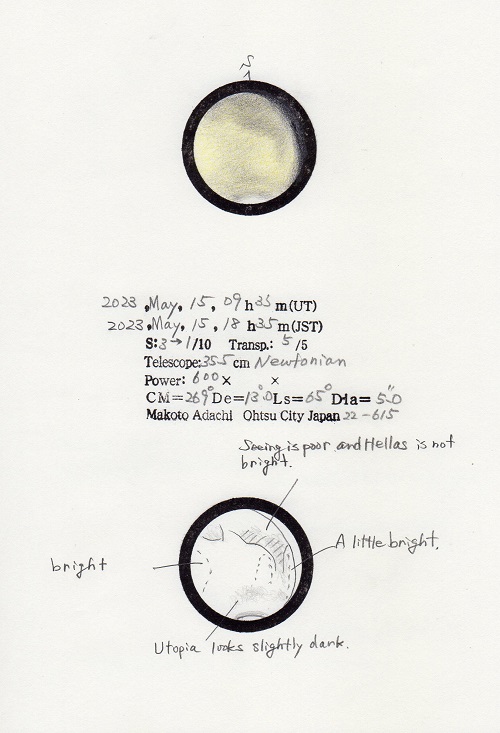 S
2023, May, 15, 09 h 35 m (UT)
2023, May, 15, 18 h 35 m (JST)
S: 3→1/10 Transp.: 5/5
Telescope: 35.5 cm Newtonian
Power: 600× ×
CM=269° De=13°.0 Ls=65° Dia=5.0"
Makoto Adachi Ohtsu City Japan 22-615
Seeing is poor and Hellas is not
bright.
A little bright.
bright
Utopia looks slightly dark.